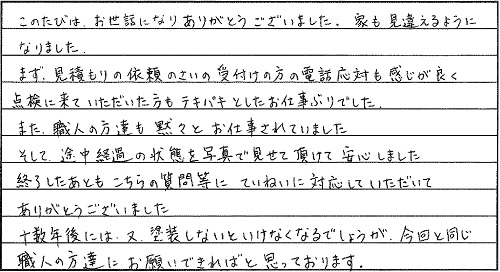 このたびは、お世話になりありがとうございました。家も見違えるように
なりました.
まず、見積もりの依頼のさいの受付けの方の電話応対も感じが良く
点検に来ていただいた方もテキパキとしたお仕事ぶりでした.
また、職人の方達も黙々とお仕事されていました
そして、途中経過の状態を写真で見せて頂けて安心しました
終了したあともこちらの質問等にていねいに対応していただいて
ありがとうございました
十数年後には、又、塗装しないといけなくなるでしょうが、今回と同じ
職人の方達にお願いできればと思っております.